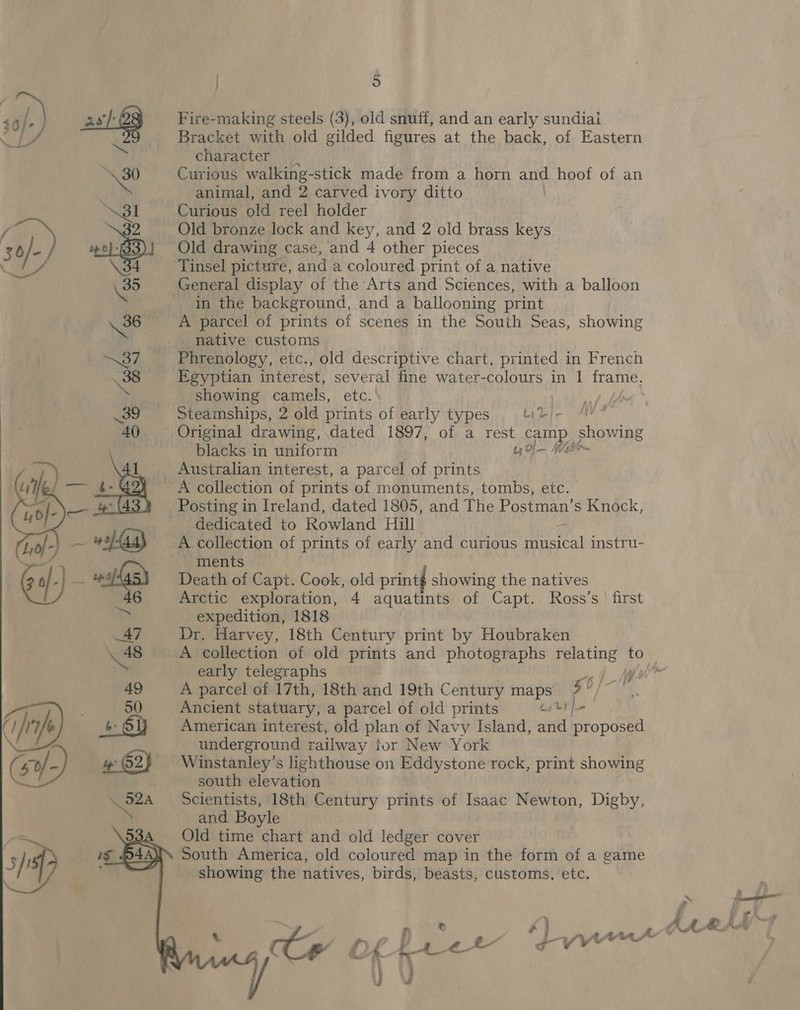 5
30/-) 25/- 28 Fire-making steels (3), old snuff, and an early sundial
29 Bracket with old gilded figures at the back, of Eastern
character
30 Curious walking-stick made from a horn and hoof of an
animal, and 2 carved ivory ditto
31 Curious old reel holder
32 Old bronze lock and key, and 2 old brass keys
30/-) 33 Old drawing case, and 4 other pieces
34 Tinsel picture, and a coloured print of a native
35 General display of the Arts and Sciences, with a balloon
in the background, and a ballooning print
36 A parcel of prints of scenes in the South Seas, showing
native customs
37 Phrenology, etc., old descriptive chart, printed in French
38 Egyptian interest, several fine water-colours in 1 frame,
showing camels, etc.
39 Steamships, 2 old prints of early types 42/-
40 Original drawing, dated 1897, of a rest camp showing
blacks in uniform 40/-
41 Australian interest, a parcel of prints
42 A collection of prints of monuments, tombs, etc.
(40/-) 43 Posting in Ireland, dated 1805, and The Postman's Knock,
dedicated to Rowland Hill
44 A collection of prints of early and curious musical instru-
ments
45 Death of Capt. Cook, old print showing the natives
46 Arctic exploration, 4 aquatints of Capt. Ross's first
expedition, 1818
47 Dr. Harvey, 18th Century print by Houbraken
48 A collection of old prints and photographs relating to
early telegraphs
49 A parcel of 17th, 18th and 19th Century maps
50 Ancient statuary, a parcel of old prints
51 American interest, old plan of Navy Island, and proposed
underground railway for New York
(50/-) 52 Winstanley's lighthouse on Eddystone rock, print showing
south elevation
52A Scientists, 18th Century prints of Isaac Newton, Digby,
and Boyle
53A Old time chart and old ledger cover
54A South America, old coloured map in the form of a game
showing the natives, birds, beasts, customs, etc.